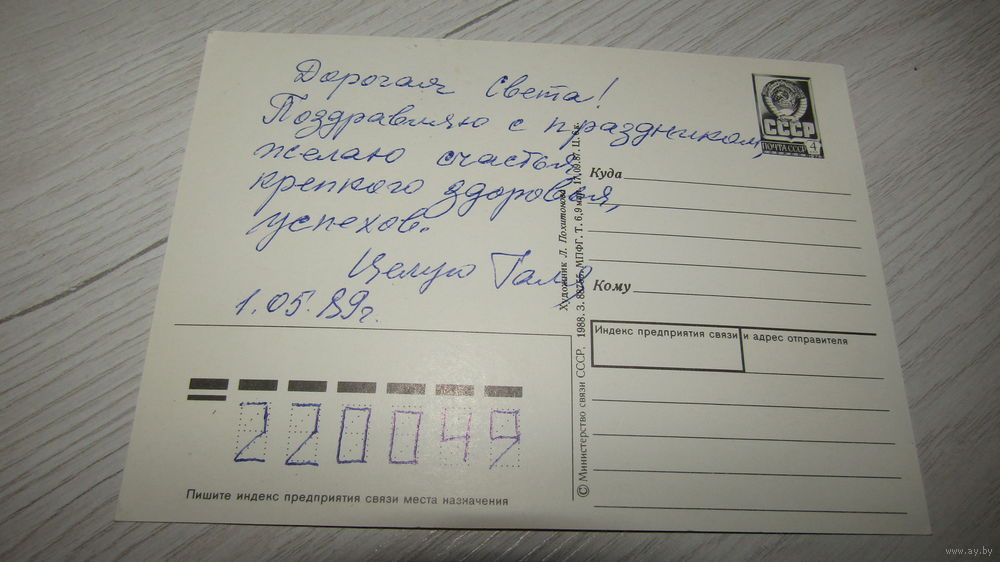 Дорогая Света!
Поздравляю с праздником,
желаю счастья,
крепкого здоровья,
успехов.
Целую Галя
1.05.89г.
СССР
ПОЧТА СССР 4
Куда
Кому
Индекс предприятия связи и адрес отправителя
Художник Л. Похитонова
© Министерство связи СССР. 1988. З. 
МПФГ. Т. 6,9 млн. 17.09.87. Ц.
220049
Пишите индекс предприятия связи места назначения
www.ay.by